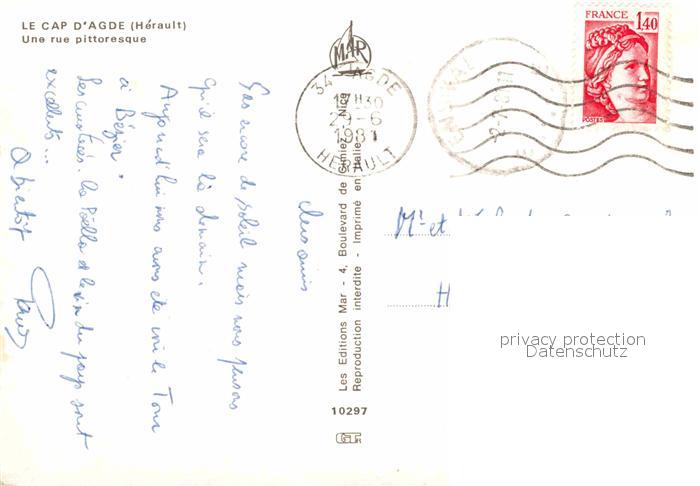 LE CAP D'AGDE (Hérault)
Une rue pittoresque
Chers amis
Pas encore de soleil mais nous pensons
qu'il sera là demain.
Aujourd'hui nous avons été voir le Tour
à Bézier.
Les crustacés, la Paëlla et le vin du pays sont
excellents...
A bientôt
MAR
Les Editions Mar - 4, Boulevard de Cimiez - Nice
Reproduction interdite - Imprimé en Italie
10297
34 AGDE
1 H30
29-6
1981
HERAULT
FRANCE
1,40
POSTES
Mr et
H
privacy protection
Datenschutz